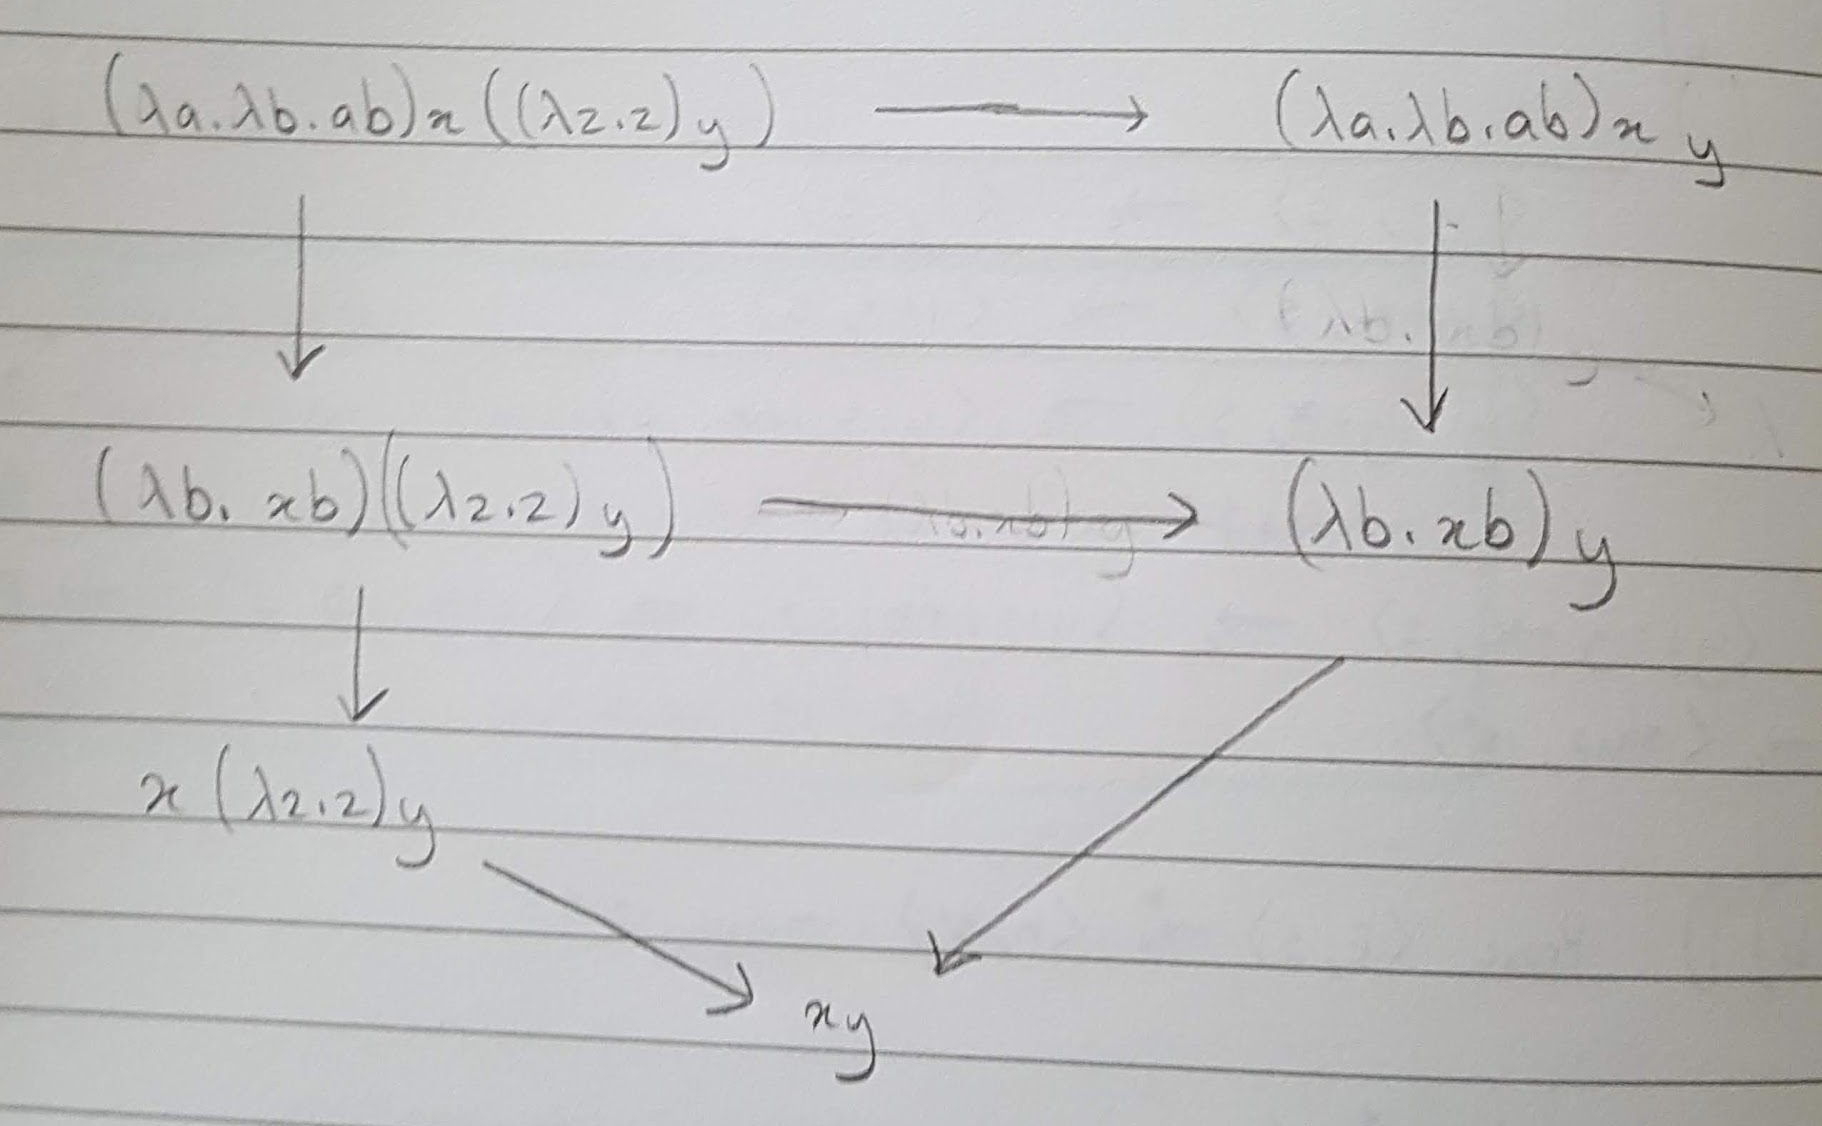 (λa.λb.ab)x((λz.z)y) → (λa.λb.ab)x y
(λb. xb)((λz.z)y) → (λb.xb)y
x(λz.z)y
xy